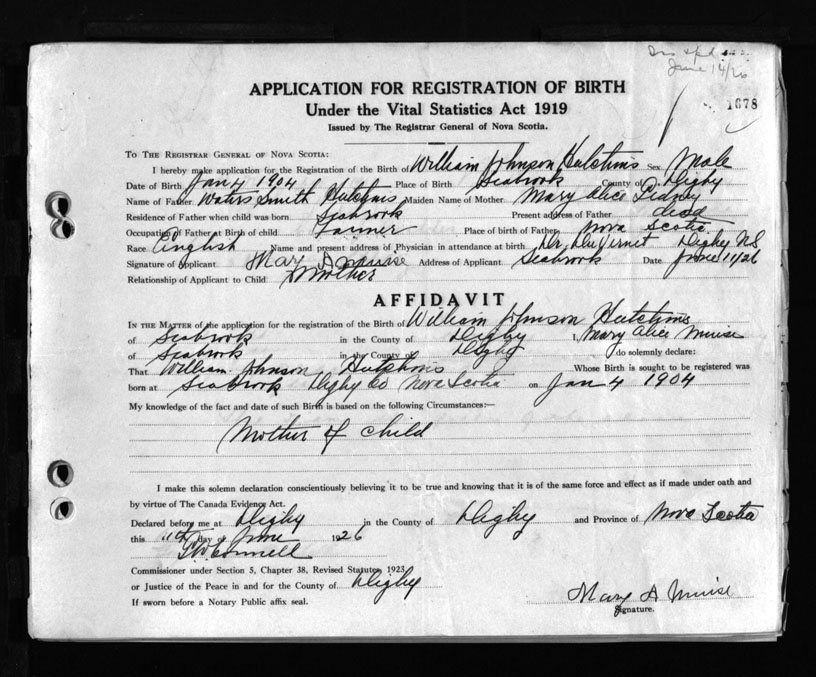 June 14/26
1678
APPLICATION FOR REGISTRATION OF BIRTH
Under the Vital Statistics Act 1919
Issued by The Registrar General of Nova Scotia.
TO THE REGISTRAR GENERAL OF NOVA SCOTIA:
I hereby make application for the Registration of the Birth of William Johnson Hutchins Sex Male
Date of Birth Jan 4 1904 Place of Birth Seabrook County of Digby
Name of Father Smith Hutchins Maiden Name of Mother Mary Alice
Residence of Father when child was born Seabrook Present address of Father dead
Occupation of Father at Birth of child Farmer Place of birth of Father Nova Scotia
Race English Name and present address of Physician in attendance at birth Dr. DuVernet Digby N.S
Signature of Applicant Mary A Muise Address of Applicant Seabrook Date June 11/26
Relationship of Applicant to Child Mother
AFFIDAVIT
IN THE MATTER of the application for the registration of the Birth of William Johnson Hutchins
of Seabrook in the County of Digby I, Mary Alice Muise
of Seabrook in the County of Digby do solemnly declare:
That William Johnson Hutchins Whose Birth is sought to be registered was
born at Seabrook Digby Co Nova Scotia on Jan 4 1904
My knowledge of the fact and date of such Birth is based on the following Circumstances:—
Mother of Child
I make this solemn declaration conscientiously believing it to be true and knowing that it is of the same force and effect as if made under oath and
by virtue of The Canada Evidence Act.
Declared before me at Digby in the County of Digby and Province of Nova Scotia
this 11th day of June 1926
Commissioner under Section 5, Chapter 38, Revised Statutes, 1923
or Justice of the Peace in and for the County of Digby
If sworn before a Notary Public affix seal.
Mary A Muise
Signature.